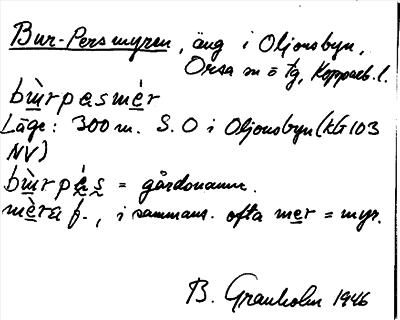 Bur-Persmyren, äng i Oljonsbyn,
Orsa sn o tg, Kopparb. l.
bùrpasmèr
Läge: 300 m. S.O i Oljonsbyn (kG 103
NV)
bùrpàs = gårdsnamn.
mèra f., i sammans. ofta mer = myr.
B. Granholm 1946